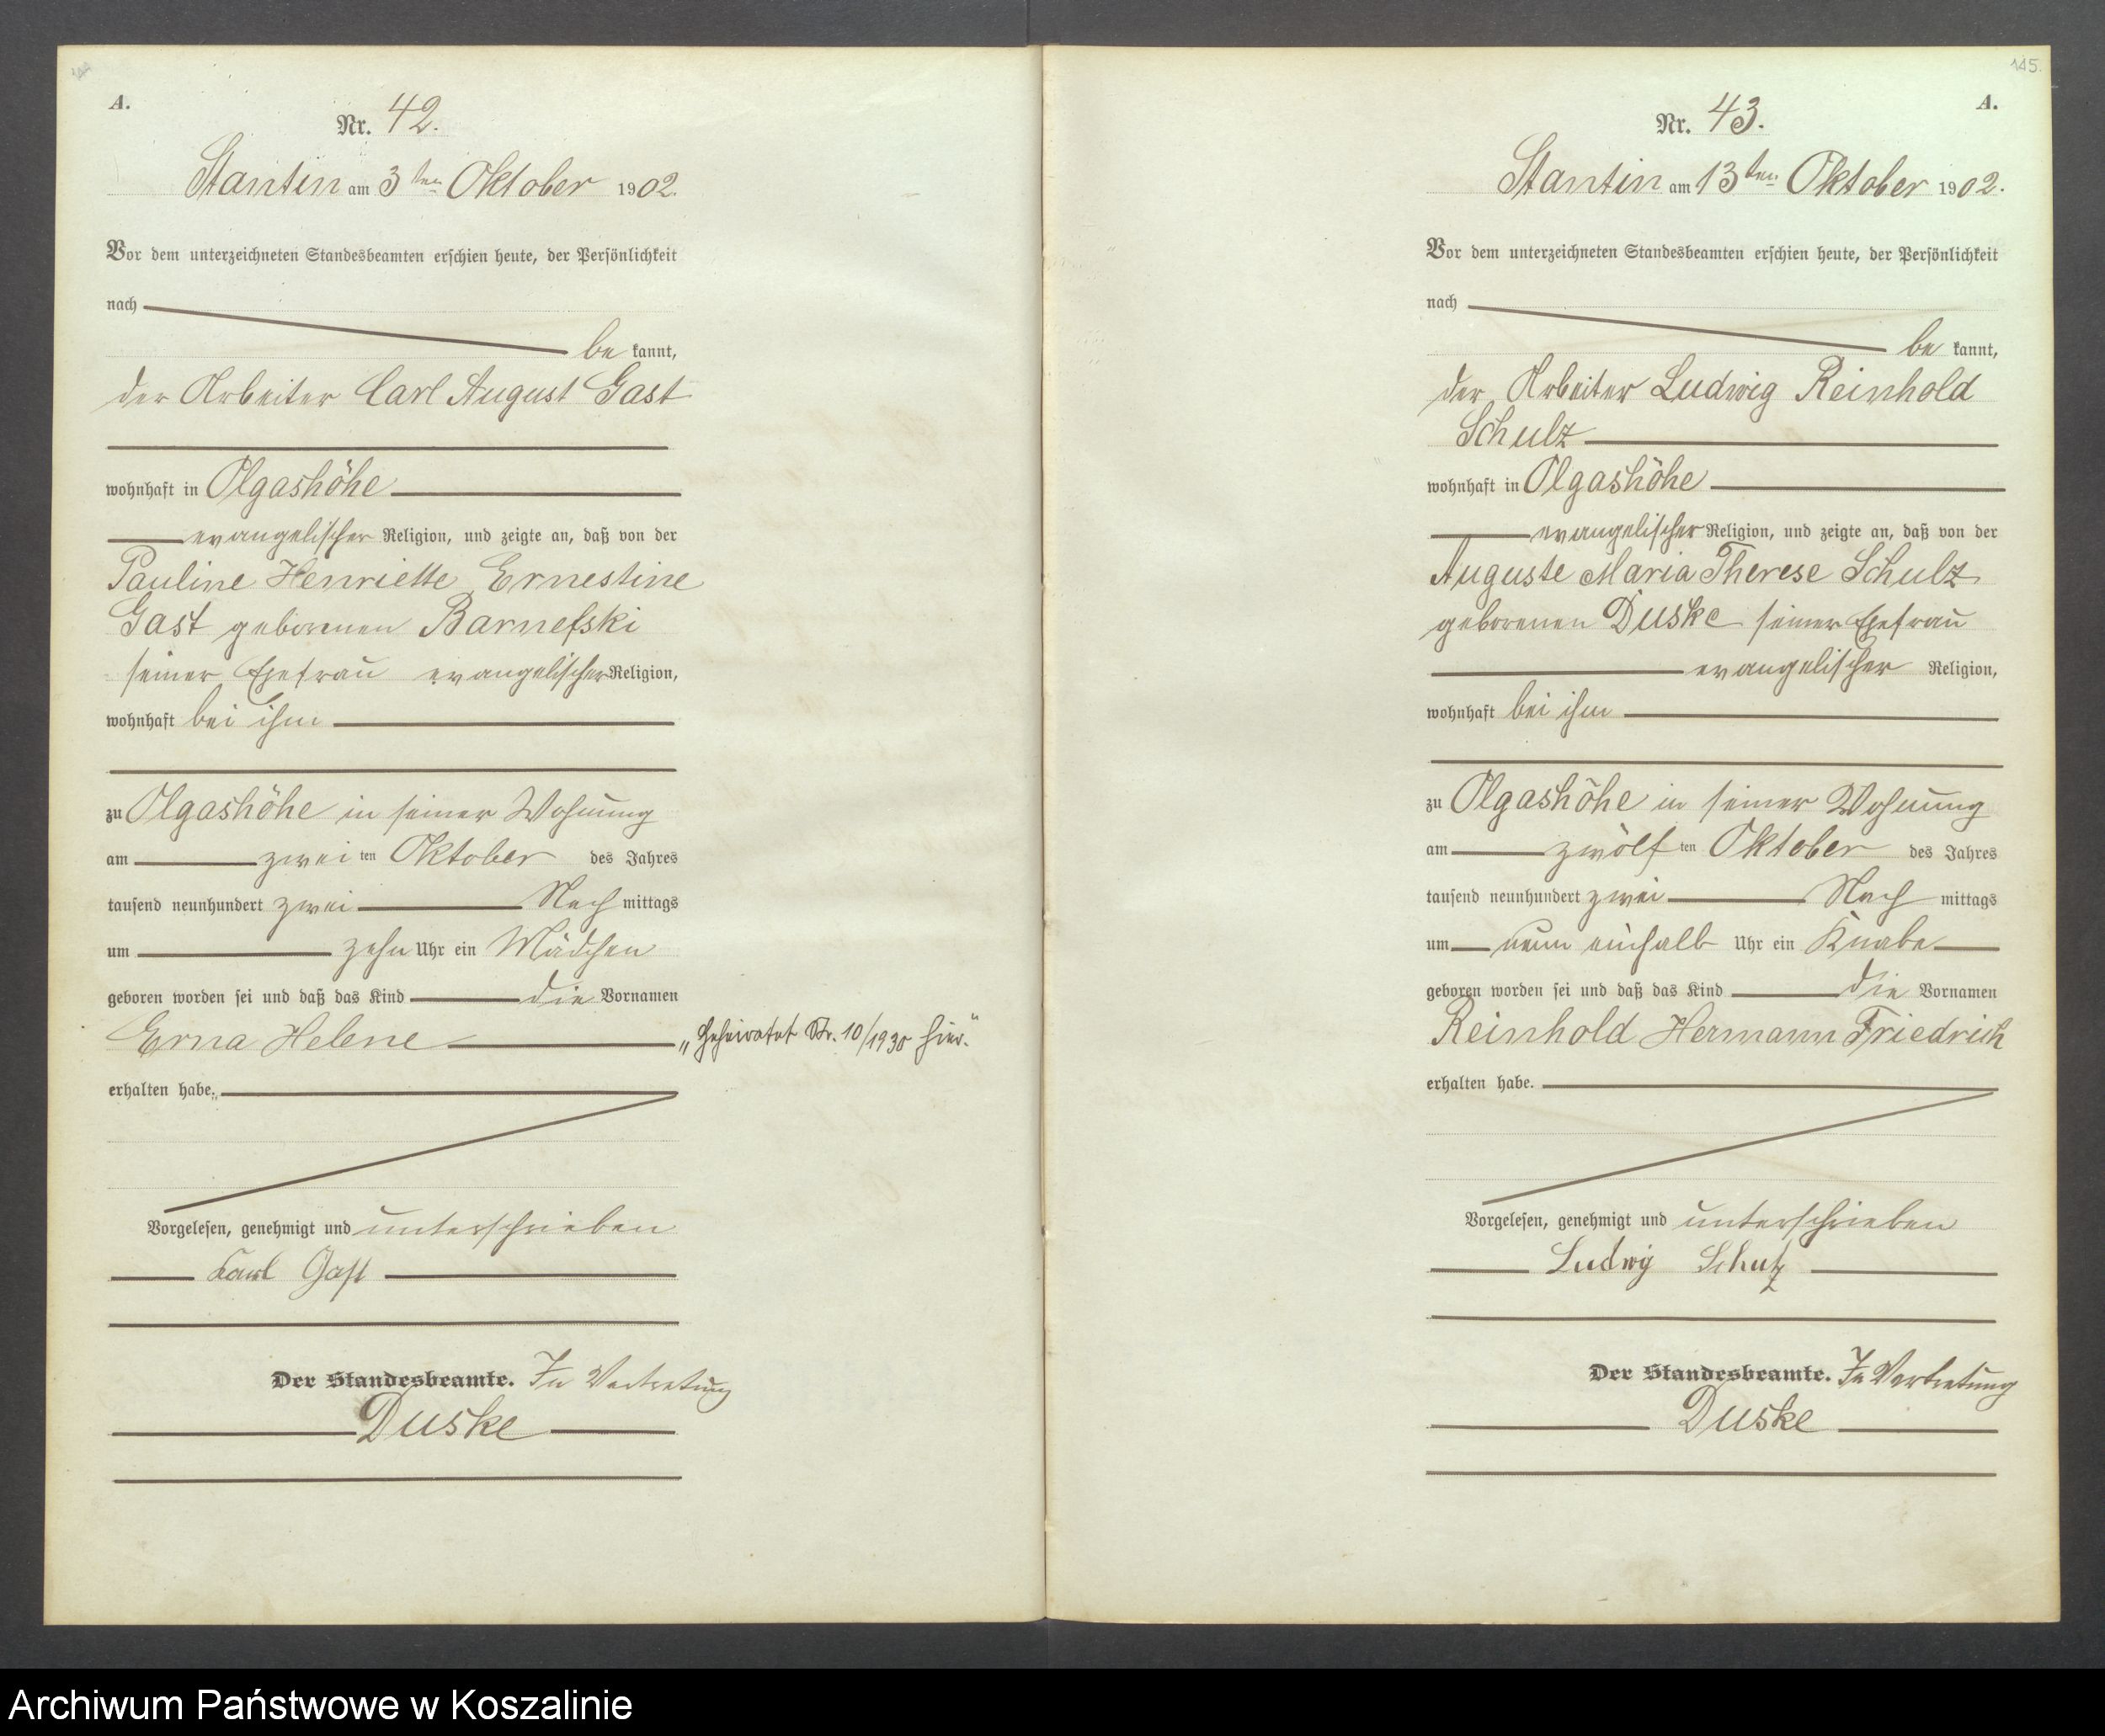 A.
Nr. 42.
Stantin am 3ten Oktober 1902.
Vor dem unterzeichneten Standesbeamten erschien heute, der Persönlichkeit
nach
be kannt,
der Arbeiter Carl August Gast
wohnhaft in Olgashöhe
evangelischer Religion, und zeigte an, daß von der
Pauline Henriette Ernestine
Gast geborenen Barnefski
seiner Ehefrau evangelischer Religion,
wohnhaft bei ihm
zu Olgashöhe in seiner Wohnung
am zwei ten Oktober des Jahres
tausend neunhundert zwei Nach mittags
um zehn Uhr ein Mädchen
geboren worden sei und daß das Kind die Vornamen
Erna Helene
„Geheiratet Nr. 10/1930 hier.“
erhalten habe.
Vorgelesen, genehmigt und unterschrieben
Karl Gast
Der Standesbeamte. In Vertretung
Duske
145.
A.
Nr. 43.
Stantin am 13ten Oktober 1902.
Vor dem unterzeichneten Standesbeamten erschien heute, der Persönlichkeit
nach
be kannt,
der Arbeiter Ludwig Reinhold
Schulz
wohnhaft in Olgashöhe
evangelischer Religion, und zeigte an, daß von der
Auguste Maria Therese Schulz
geborenen Duske seiner Ehefrau
evangelischer Religion,
wohnhaft bei ihm
zu Olgashöhe in seiner Wohnung
am zwölf ten Oktober des Jahres
tausend neunhundert zwei Nach mittags
um neun einhalb Uhr ein Knabe
geboren worden sei und daß das Kind die Vornamen
Reinhold Hermann Friedrich
erhalten habe.
Vorgelesen, genehmigt und unterschrieben
Ludwig Schulz
Der Standesbeamte. In Vertretung
Duske
Archiwum Państwowe w Koszalinie